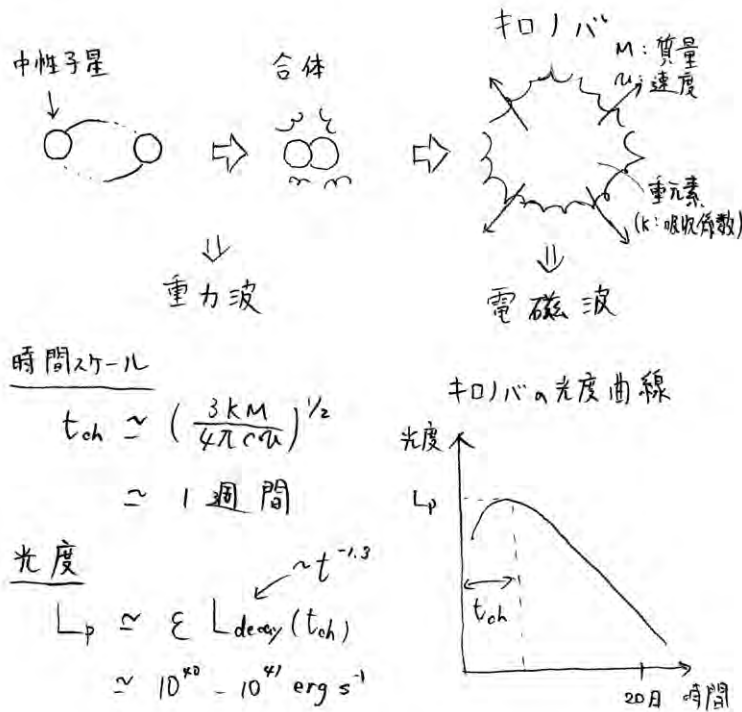 中性子星
合体
キロノバ
M:質量
v:速度
重元素
(κ:吸収係数)
重力波
電磁波
時間スケール
t_ch ≃ (3κM / 4πcv)^1/2
≃ 1週間
光度
L_p ≃ ε L_decay(t_ch)
~t^-1.3
≃ 10^40 - 10^41 erg s^-1
キロノバの光度曲線
光度
L_p
t_ch
20日 時間